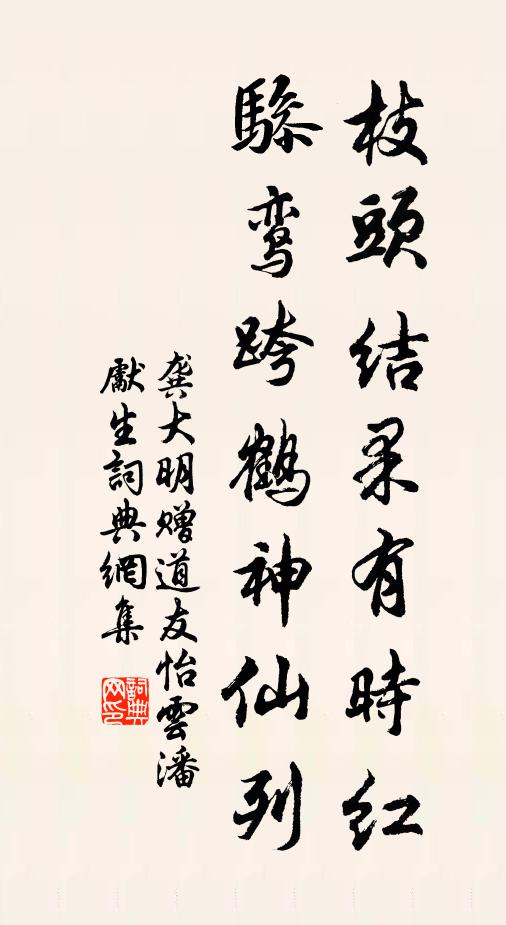 枝頭結果有時紅
驂鸾跨鶴神仙列
龚大明赠道友怡雲潘
獻生詞典網集
詞典网印